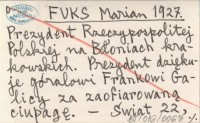 FUKS Marian 1927.
Prezydent Rzeczypospolitej
Polskiej na Błoniach kra-
kowskich. Prezydent dzięku-
je góralowi Frankowi Ga-
licy za zaofiarowaną
ciupagę. — Świat 22.